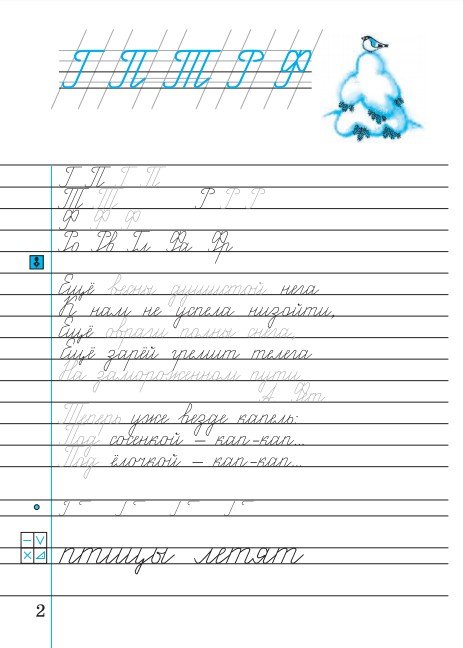 Г П Т Р Ф
Г П Г П
Т Т Р Р Р
Ф Ф Ф
Ро Рв Гл Фа Фр
Ещё весны душистой нега
К нам не успела низойти,
Ещё овраги полны снега,
Ещё зарёй гремит телега
На замороженном пути.
А. Фет
Теперь уже везде капель:
Под сосенкой – кап-кап...
Под ёлочкой – кап-кап...
птицы летят
2